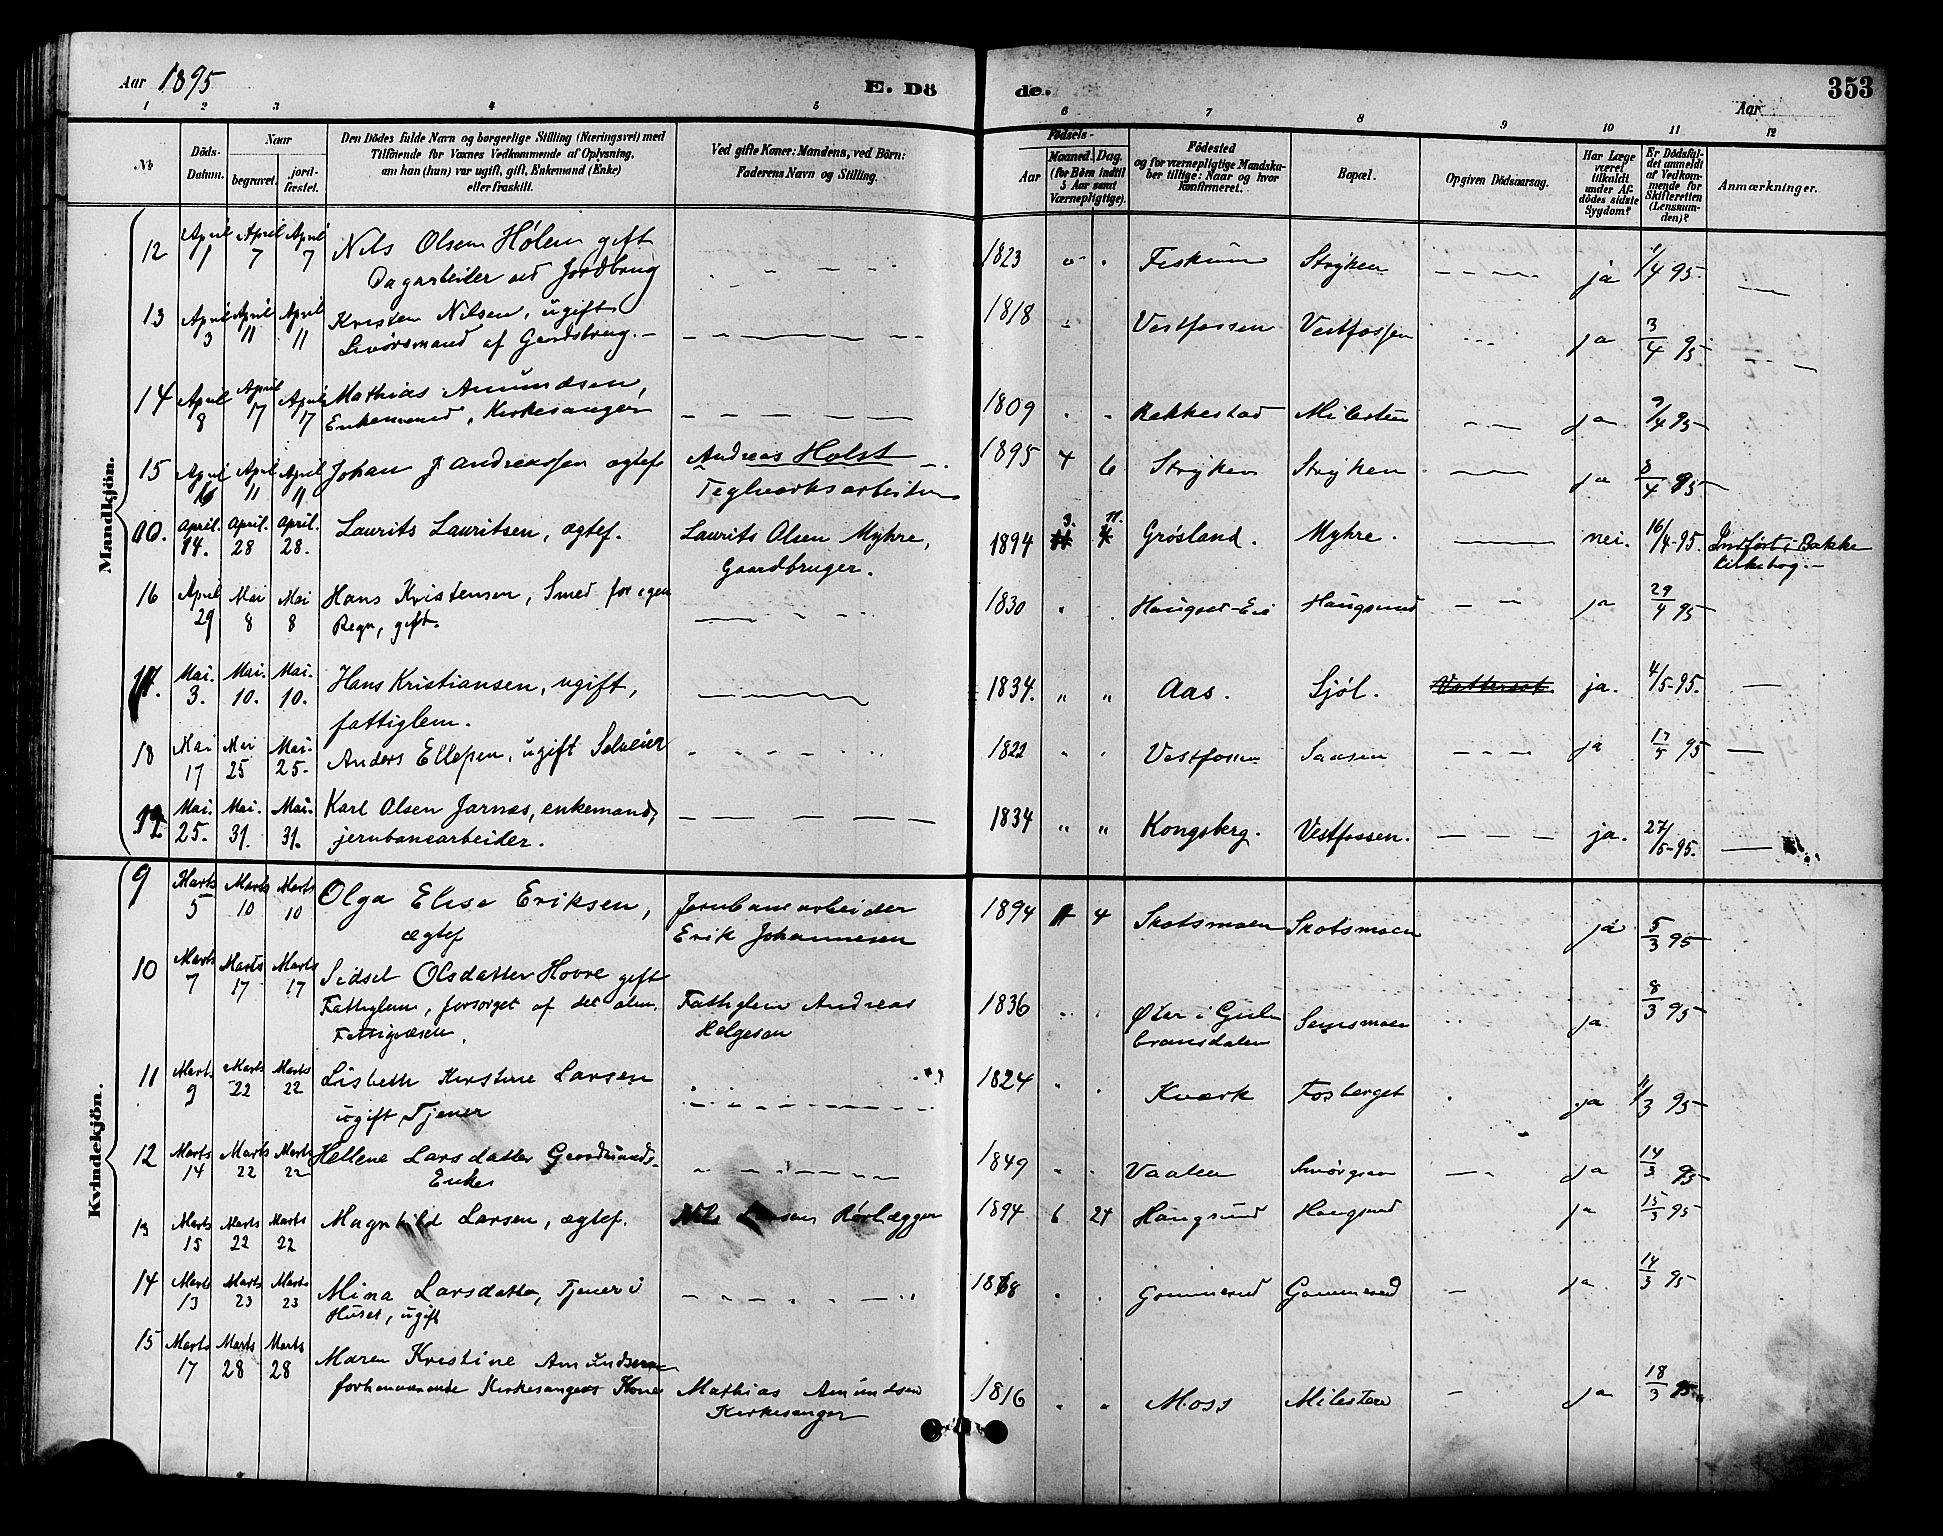 Aar 1895
E. Dö
de.
353
Aar
1 2 3 4 5 6 7 8 9 10 11 12
No
Döds-Datum.
Naar
begravet.
jordfæstet.
Den Dödes fulde Navn og borgerlige Stilling (Næringsvei) med
Tilföiende for Voxnes Vedkommende af Oplysning,
om han (hun) var ugift, gift, Enkemand (Enke)
eller fraskilt.
Ved gifte Koner: Mandens, ved Börn:
Faderens Navn og Stilling.
Födsels-
Aar
Maaned. Dag.
(for Börn indtil
5 Aar samt
Værnepligtige).
Födested
og for værnepligtige Mandskaber tillige: Naar og hvor
konfirmeret.
Bopæl.
Opgiven Dödsaarsag.
Har Læge
været
tilkaldt
under Afdödes sidste
Sygdom?
Er Dödsfaldet anmeldt
af Vedkommende for
Skifteretten
(Lensmanden)?
Anmærkninger.
Mandkjön.
12 April 1 April 7 April 7 Nils Olsen Hølen gift 1823 Fiskum Stryken ja 1/4 95
Dagarbeider ved Jordbrug
13 April 3 April 11 April 11 Kristen Nilsen, ugift 1818 Vestfossen Vestfossen ja 3/4 95
af Gaardsbrug.
14 April 8 April 17 April 17 Mathias Amundsen, 1809 Rakkestad Milesten ja 9/4 95
Enkemand, Kirkesanger
15 April April 11 April 11 Johan J Andreassen ægtef Andreas Holst 1895 4 6 Stryken Stryken ja 8/4 95
Teglverksarbeider
10. April. 14. April. 28 April. 28. Laurits Lauritsen, ægtef. Laurits Olsen Myhre, 1894 3. 11. Grøsland. Myhre. nei. 16/4-95. Indført i Bakke
Gaardbruger. kirkebog.
16 April 29 Mai 8 Mai 8 Hans Kristensen, Smed for egen 1830 Haugsund ja 29/4 95
Regn, gift.
17. Mai. 3. Mai. 10. Mai. 10. Hans Kristiansen, ugift, 1834. " " Aas. Sjöl. Vattersot. ja. 4/5-95.
fattiglem.
18 Mai 17 Mai 25 Mai. 25. Anders Ellefsen, ugift Selveier 1822 Vestfossen ja 17/5 95
19. Mai. 25. Mai. 31. Mai. 31. Karl Olsen Jarnæs, enkemand, 1834 " " Kongsberg. Vestfossen. ja. 27/5-95.
jernbanearbeider.
Kvindekjön.
9 Marts 5 Marts 10 Marts 10 Olga Elise Eriksen, Jernbanearbeider 1894 4 Skotsmoen Skotsmoen ja 5/3 95
ægtef Erik Johannesen
10 Marts 7 Marts 17 Marts 17 Sidsel Olsdatter Hovre gift
Fattiglem, forsørget af det alm. Fattiglem Andreas 1836 Øier i Gulbransdalen Semsmoen ja 8/3 95
Fattigvæsen. Helgesen
11 Marts 9 Marts 22 Marts 22 Lisbeth Kirstine Larsen 1824 Kværk Fosberget ja 11/3 95
ugift Tjener
12 Marts 14 Marts 22 Marts 22 Hellene Larsdatter Gaardmands- 1849 Vaalen ja 14/3 95
Enke
13 Marts 15 Marts 22 Marts 22 Magnhild Larsen, ægtef. Nils Larsen Rørlægger 1894 6 24 Haugsund Haugsund ja 15/3 95
14 Marts 13 Marts 23 Marts 23 Mina Larsdatter, Tjener i 1868 Gommerud Gommerud ja 14/3 95
Huset, ugift
15 Marts 17 Marts 28 Marts 28 Maren Kristine Amundsen
forhenværende Kirkesangers Kone Mathias Amundsen 1816 Moss Milesten ja 18/3 95
Kirkesanger